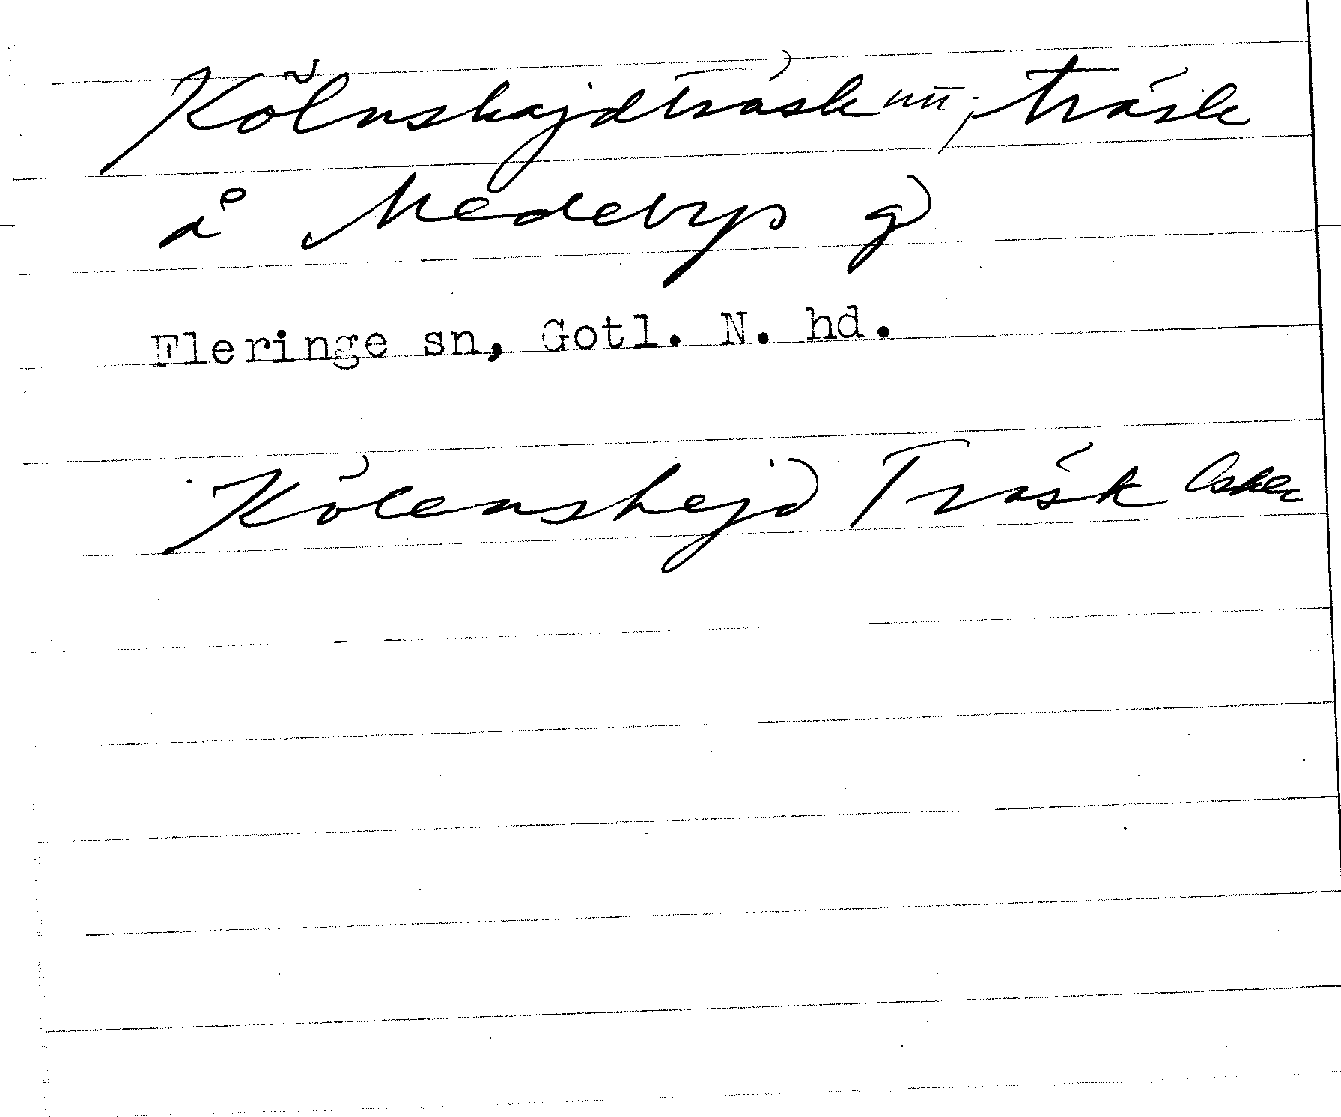 Kölnshajdträsk nu, träsk
å Medebys g
Fleringe sn, Gotl. N. hd.
Kölenshejd Träsk